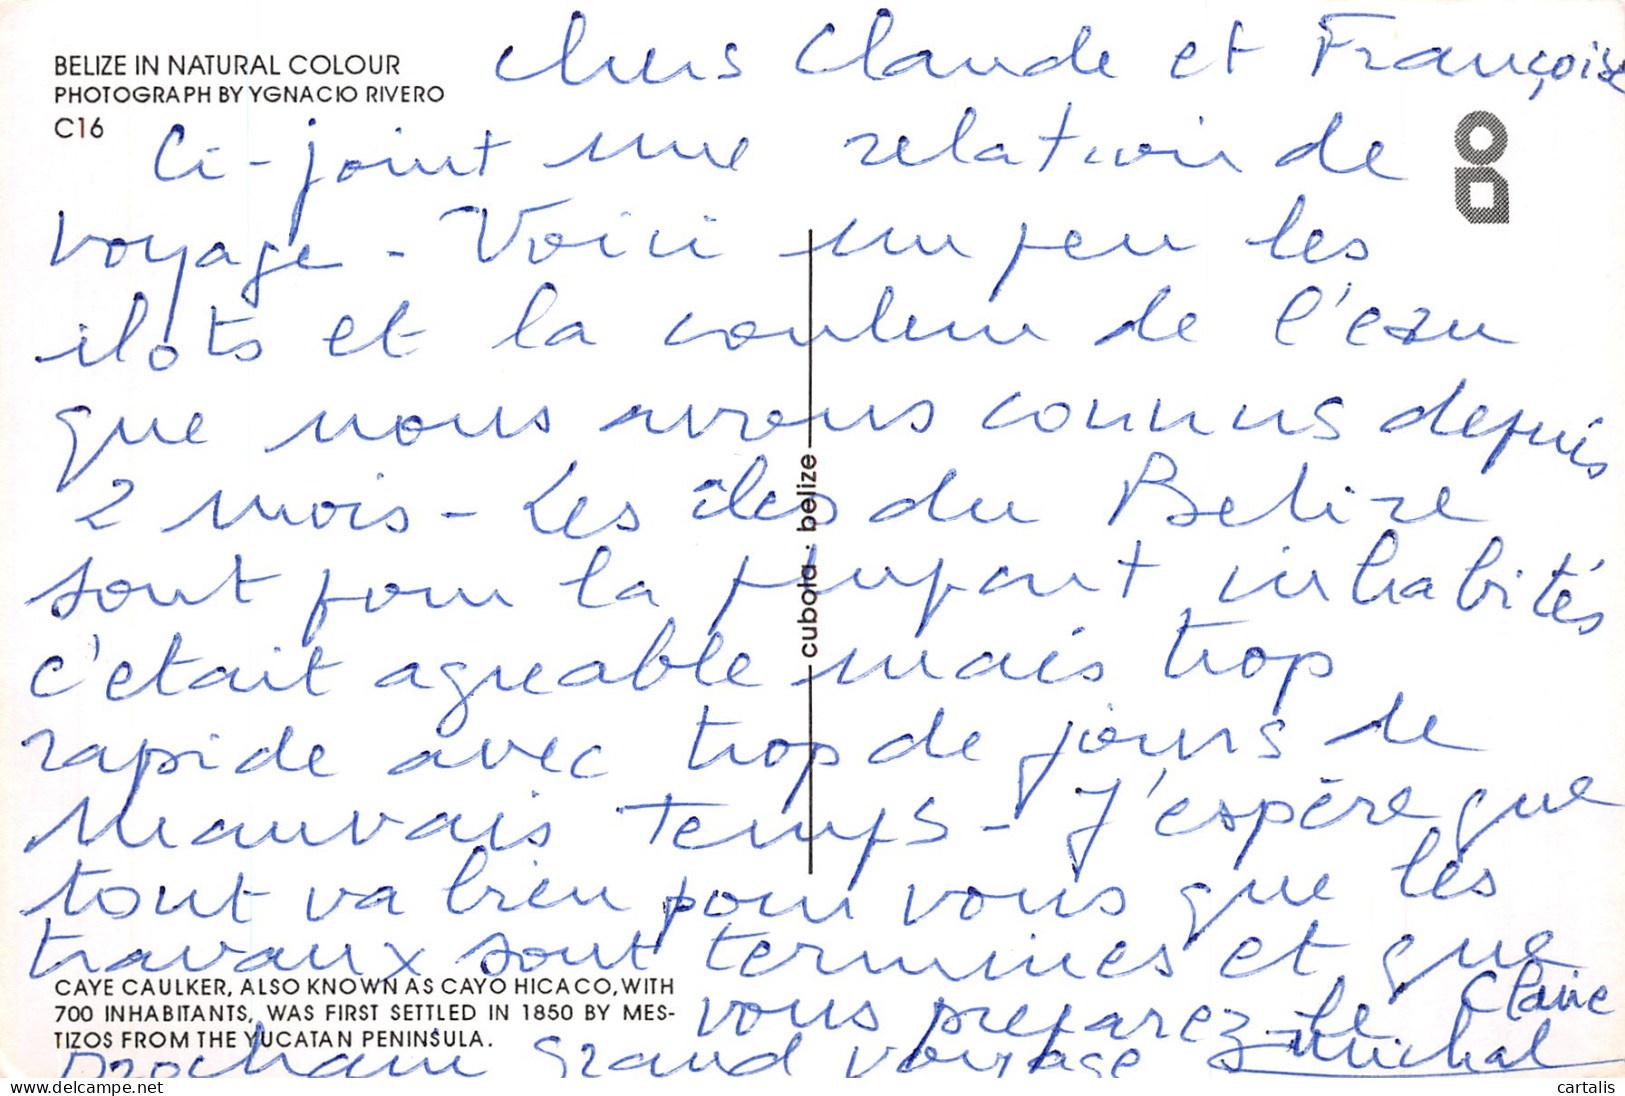 BELIZE IN NATURAL COLOUR
PHOTOGRAPH BY YGNACIO RIVERO
C16
Chers Claude et Françoise
Ci-joint une relation de
voyage - Voici un peu les
ilots et la couleur de l'eau
que nous avons connus depuis
2 mois - Les îles du Belize
sont pour la plupart inhabités
c'etait agreable mais trop
rapide avec trop de jours de
mauvais temps - J'espère que
tout va bien pour vous que les
travaux sont terminés et que
vous preparez le
prochain grand voyage
Claire
Michel
cubola · belize
CAYE CAULKER, ALSO KNOWN AS CAYO HICACO, WITH
700 INHABITANTS, WAS FIRST SETTLED IN 1850 BY MES-
TIZOS FROM THE YUCATAN PENINSULA.
cartalis